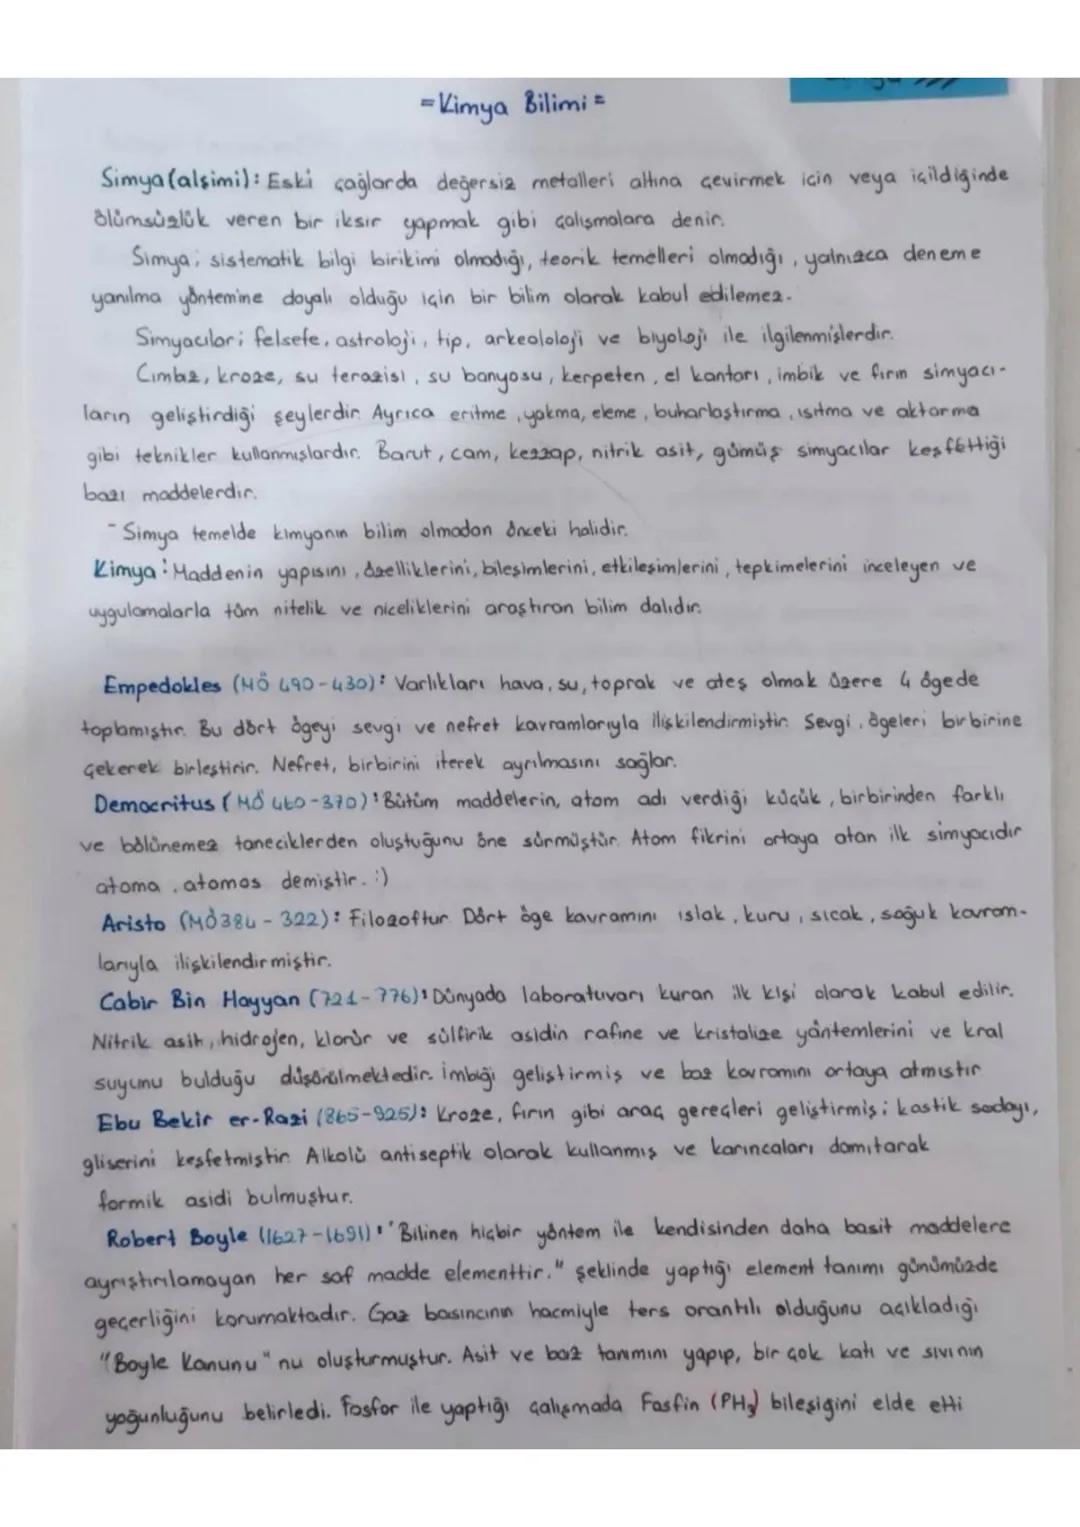 =Kimya Bilimi=
Simya(alşimi): Eski çağlarda değersiz metalleri altına çevirmek için veya içildiğinde
ölümsüzlük veren bir iksir yapmak gibi çalışmalara denir.
Simya; sistematik bilgi birikimi olmadığı, teorik temelleri olmadığı, yalnızca deneme
yanılma yöntemine dayalı olduğu için bir bilim olarak kabul edilemez.
Simyacılar; felsefe, astroloji, tıp, arkeololoji ve biyoloji ile ilgilenmişlerdir.
Cımbız, kroze, su terazisi, su banyosu, kerpeten, el kantarı, imbik ve fırın simyacı-
ların geliştirdiği şeylerdir. Ayrıca eritme, yakma, eleme, buharlaştırma, ısıtma ve aktarma
gibi teknikler kullanmışlardır. Barut, cam, kezzap, nitrik asit, gümüş simyacılar keşfettiği
bazı maddelerdir.
- Simya temelde kimyanın bilim olmadan önceki halidir.
Kimya: Maddenin yapısını, özelliklerini, bileşimlerini, etkileşimlerini, tepkimelerini inceleyen ve
uygulamalarla tüm nitelik ve niceliklerini araştıran bilim dalıdır.
Empedokles (MÖ 490-430): Varlıkları hava, su, toprak ve ateş olmak üzere 4 ögede
toplamıştır. Bu dört ögeyi sevgi ve nefret kavramlarıyla ilişkilendirmiştir. Sevgi, ögeleri birbirine
çekerek birleştirir. Nefret, birbirini iterek ayrılmasını sağlar.
Democritus (MÖ 460-370): Bütüm maddelerin, atom adı verdiği küçük, birbirinden farklı
ve bölünemez taneciklerden oluştuğunu öne sürmüştür. Atom fikrini ortaya atan ilk simyacıdır
atoma, atomos demiştir. :)
Aristo (MÖ384 - 322): Filozoftur. Dört öge kavramını ıslak, kuru, sıcak, soğuk kavram-
larıyla ilişkilendirmiştir.
Cabir Bin Hayyan (721-776): Dünyada laboratuvarı kuran ilk kişi olarak kabul edilir.
Nitrik asit, hidrojen, klorür ve sülfirik asidin rafine ve kristalize yöntemlerini ve kral
suyunu bulduğu düşünülmektedir. İmbiği geliştirmiş ve baz kavramını ortaya atmıştır
Ebu Bekir er-Razi (865-925): Kroze, fırın gibi araç gereçleri geliştirmiş; kostik sodayı,
gliserini keşfetmiştir. Alkolü antiseptik olarak kullanmış ve karıncaları damıtarak
formik asidi bulmuştur.
Robert Boyle (1627-1691): "Bilinen hiçbir yöntem ile kendisinden daha basit maddelere
ayrıştırılamayan her saf madde elementtir." şeklinde yaptığı element tanımı günümüzde
geçerliğini korumaktadır. Gaz basıncının hacmiyle ters orantılı olduğunu açıkladığı
"Boyle Kanunu" nu oluşturmuştur. Asit ve baz tanımını yapıp, bir çok katı ve sıvının
yoğunluğunu belirledi. Fosfor ile yaptığı çalışmada Fosfin (PH₃) bileşiğini elde etti